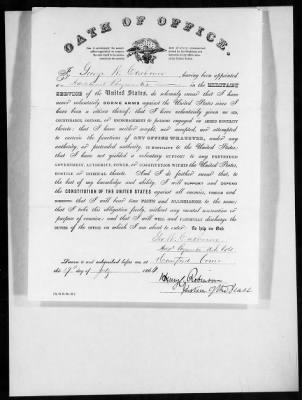 OATH OF OFFICE.
I, George W. having been appointed
in the MILITARY
SERVICE of the United States, do solemnly swear that I have
never voluntarily BORNE ARMS against the United States since I
have been a citizen thereof; that I have voluntarily given NO AID,
COUNTENANCE, COUNSEL, or ENCOURAGEMENT to persons engaged in ARMED HOSTILITY
thereto; that I have neither sought, nor accepted, nor attempted
to exercise the functions of ANY OFFICE WHATEVER, under any
authority, or pretended authority, IN HOSTILITY to the United States;
that I have not yielded a voluntary support to ANY PRETENDED
GOVERNMENT, AUTHORITY, POWER, or CONSTITUTION WITHIN the United States,
HOSTILE or INIMICAL thereto. And I do further swear that, to
the best of my knowledge and ability, I will SUPPORT and DEFEND
the CONSTITUTION OF THE UNITED STATES against all enemies, FOREIGN and
DOMESTIC; that I will bear true FAITH and ALLEGIANCE to the same;
that I take this obligation freely, without any mental reservation or
purpose of evasion; and that I will WELL and FAITHFULLY discharge the
DUTIES of the OFFICE on which I am about to enter: So help me God.
Geo. W.
Sworn to and subscribed before me, at Hartford Conn
this 17th day of July 186
Henry C. Robinson
Justice of the Peace